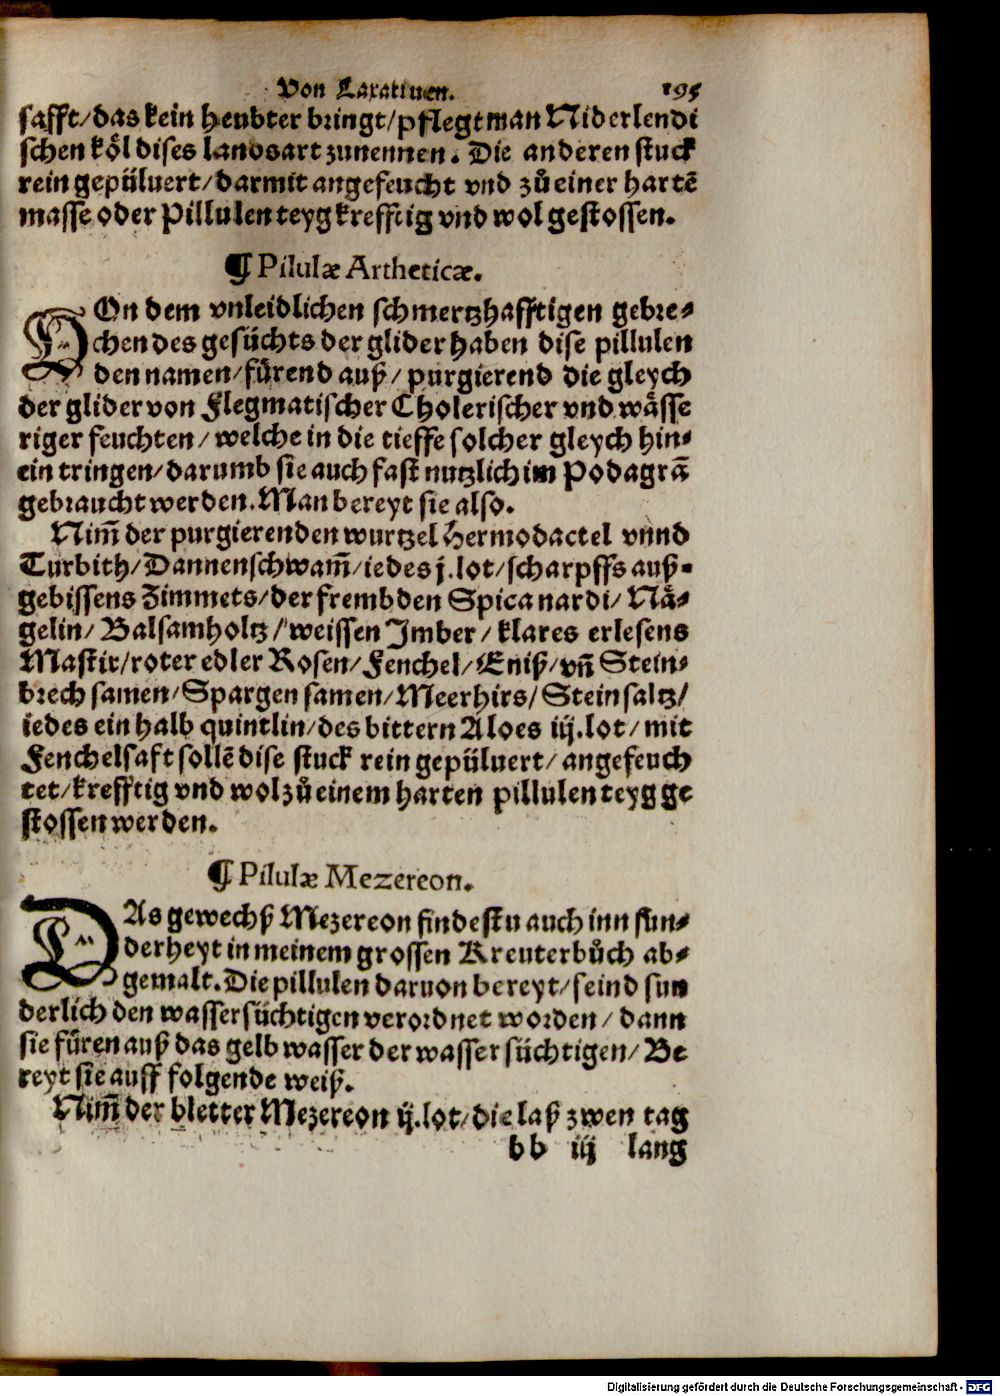 Von Laxatiuen. 195
safft/das kein heubter bringt/pflegt man Niderlendi
schen köl dises landsart zunennen. Die anderen stuck
rein gepüluert/darmit angefeucht vnd zů einer hartē
masse oder Pillulen teyg krefftig vnd wol gestossen.
¶ Pilulæ Artheticæ.
VOn dem vnleidlichen schmertzhafftigen gebre-
chen des gesüchts der glider haben dise pillulen
den namen/fürend auß/purgierend die gleych
der glider von Flegmatischer Cholerischer vnd wässe
riger feuchten/welche in die tieffe solcher gleych hin-
ein tringen/darumb sie auch fast nutzlich im Podagrā
gebraucht werden. Man bereyt sie also.
Nim̄ der purgierenden wurtzel Hermodactel vnnd
Turbith/Dannenschwam̄/iedes j.lot/scharpffs auß-
gebissens Zimmets/der frembden Spica nardi/Nä-
gelin/Balsamholtz/weissen Imber/klares erlesens
Mastix/roter edler Rosen/Fenchel/Eniß/vn̄ Stein-
brech samen/Spargen samen/Meerhirs/Steinsaltz/
iedes ein halb quintlin/des bittern Aloes iij.lot/mit
Fenchelsaft sollē dise stuck rein gepüluert/angefeuch
tet/krefftig vnd wol zů einem harten pillulen teyg ge
stossen werden.
¶ Pilulæ Mezereon.
DAs gewechß Mezereon findestu auch inn sun-
derheyt in meinem grossen Kreuterbůch ab-
gemalt. Die pillulen daruon bereyt/seind sun
derlich den wassersüchtigen verordnet worden/dann
sie füren auß das gelb wasser der wassersüchtigen/Be
reyt sie auff folgende weiß.
Nim̄ der bletter Mezereon ij.lot/die laß zwen tag
bb iij lang
Digitalisierung gefördert durch die Deutsche Forschungsgemeinschaft - DFG